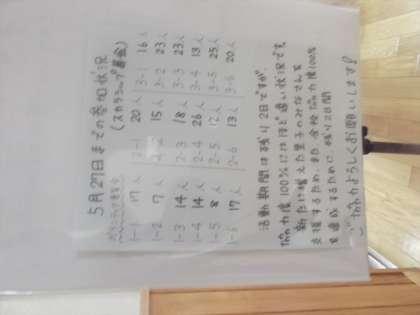 5月27日までの参加状況
(スカラシップ募金)
1-1 17人 2-1 20人 3-1 16人
1-2 7人 2-2 15人 3-2 23人
1-3 14人 2-3 18人 3-3 23人
1-4 14人 2-4 26人 3-4 13人
1-5 8人 2-5 12人 3-5 25人
1-6 17人 2-6 13人 3-6 20人
活動期間は残り2日ですが、
協力度100%にはほど遠い状況です。
支援するため、また、全校協力度100%
を達成するために、残り2日間
ご協力よろしくお願いします!!